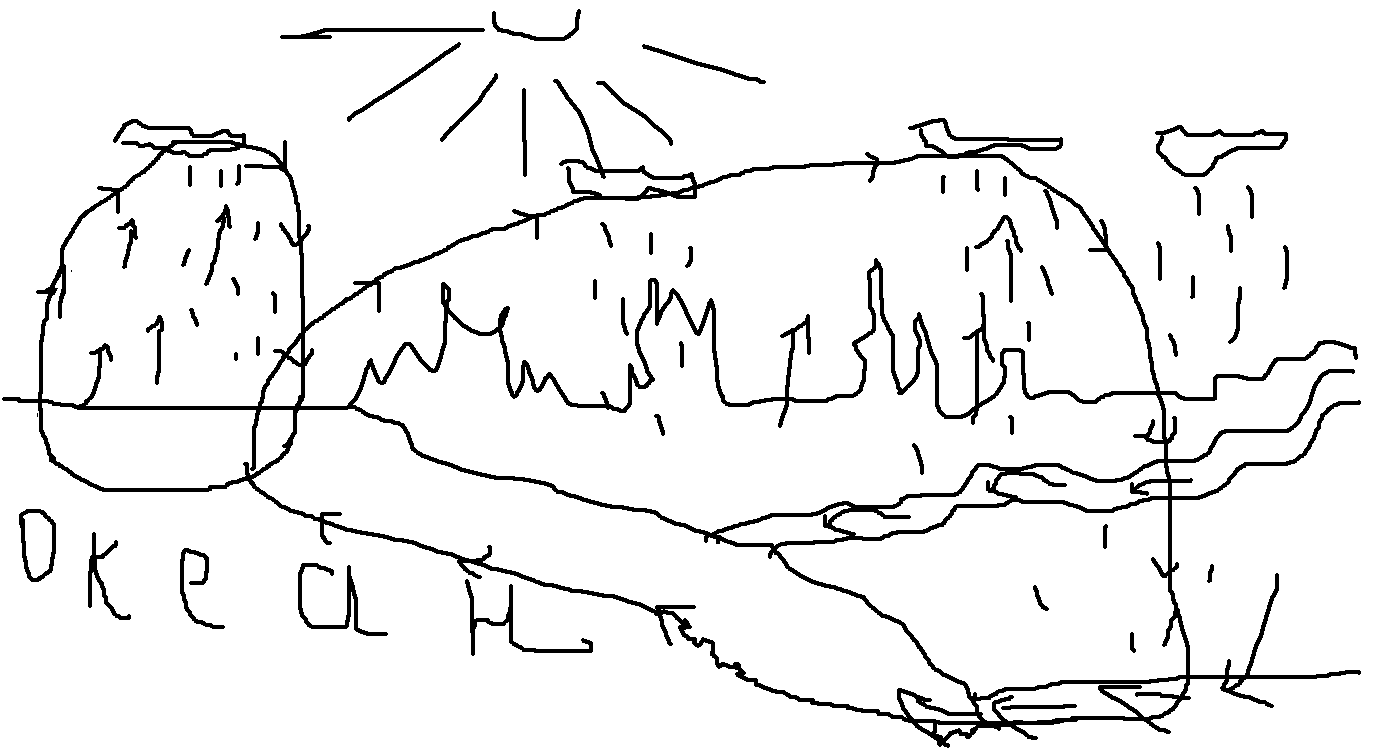 Океан